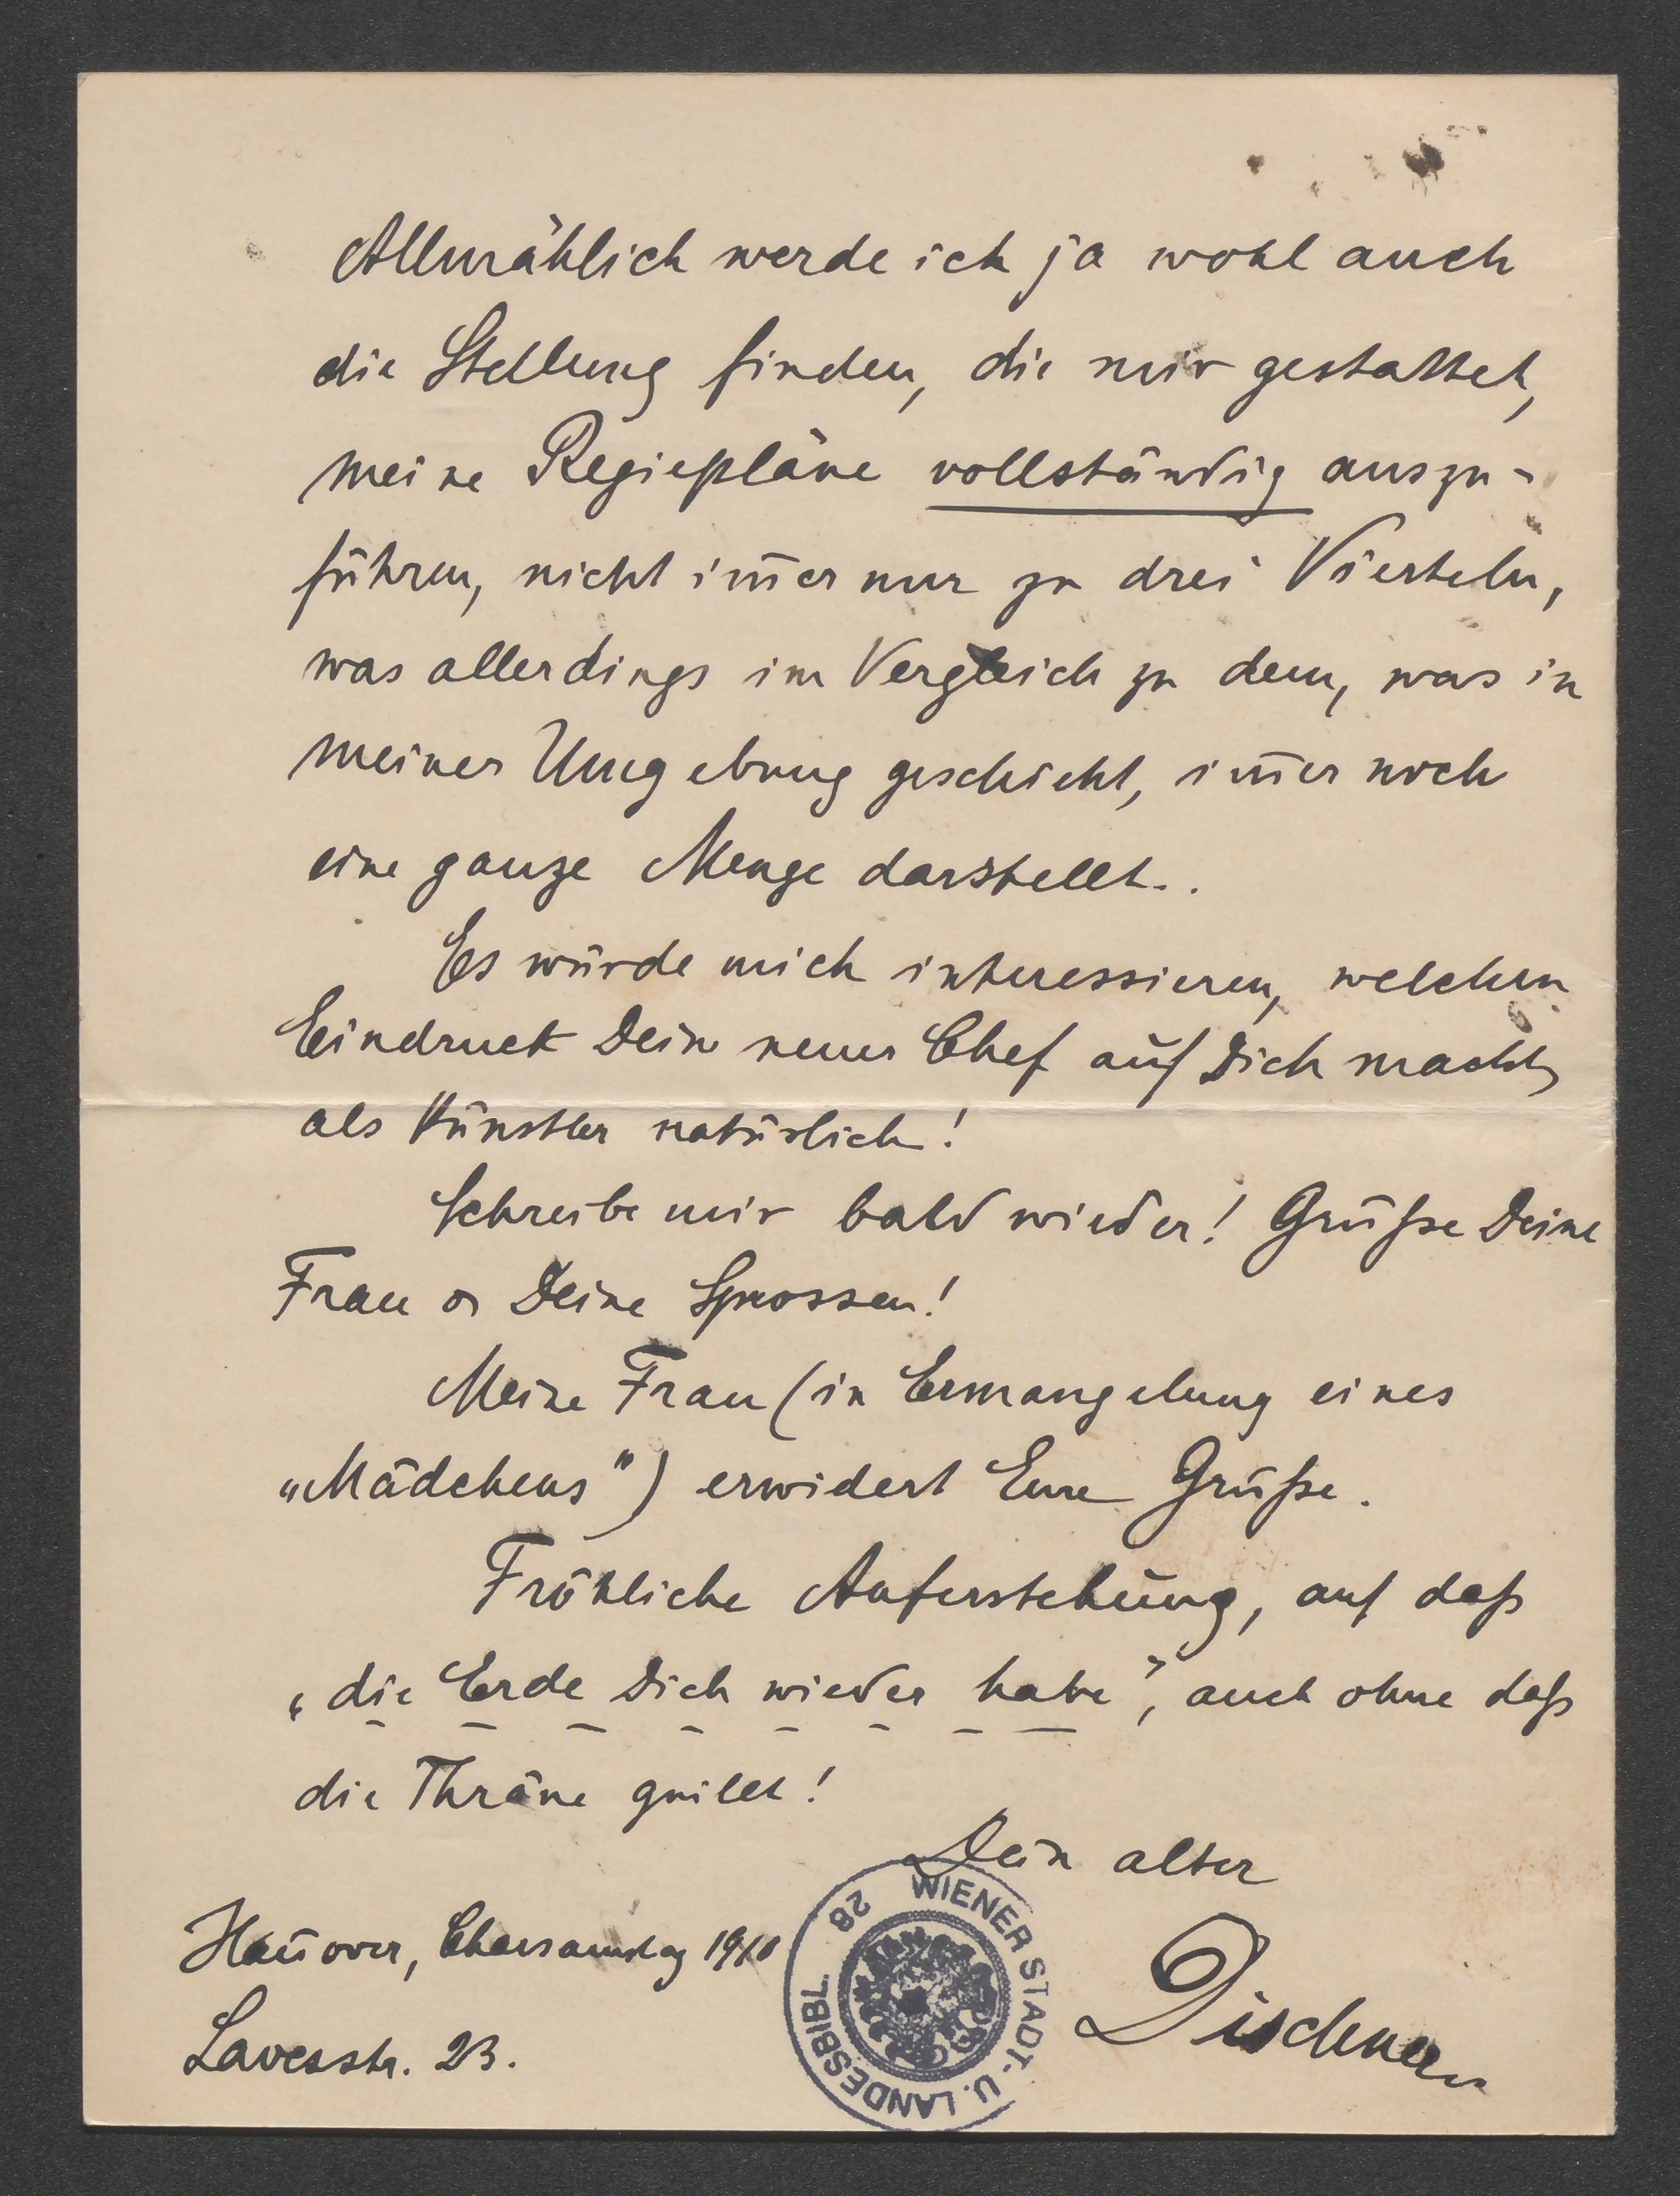 Allmählich werde ich ja wohl auch
die Stellung finden, die mir gestattet,
meine Regiepläne vollständig auszu-
führen, nicht im̅er nur zu drei Vierteln,
was allerdings im Vergleich zu dem, was in
meiner Umgebung geschieht, im̅er noch
eine ganze Menge darstellt..
Es würde mich interessieren, welchen
Eindruck Dein neuer Chef auf Dich macht,
als Künstler natürlich!
Schreibe mir bald wieder! Grüße Deine
Frau & Deine Sprossen!
Meine Frau (in Ermangelung eines
„Mädchens") erwidert Eure Grüße.
Fröhliche Auferstehung, auf daß
„die Erde Dich wieder habe", auch ohne daß
die Thräne quillt!
Dein alter
Han̅over, Charsamstag 1910
Lavesstr. 23.
WIENER STADT- U. LANDESBIBL. 28